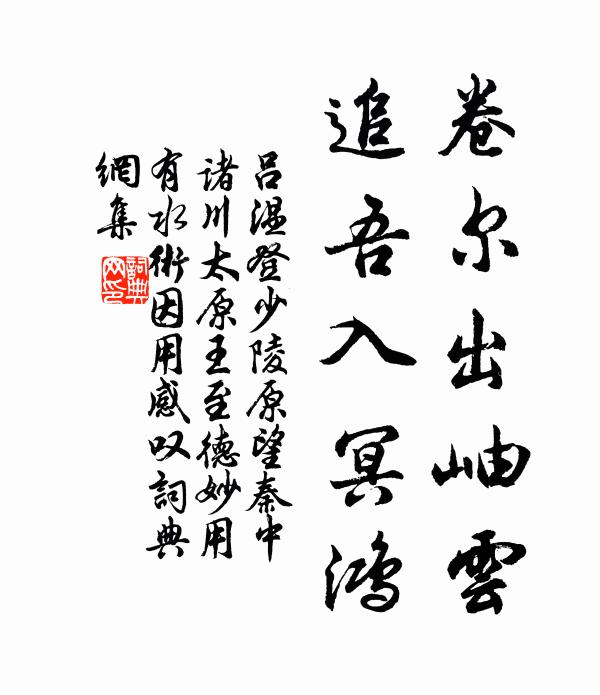 卷尔出岫雲
追吾入冥鸿
吕温登少陵原望秦中
诸川太原王至德妙用
有水術因用感叹詞典
網集
詞典
网印